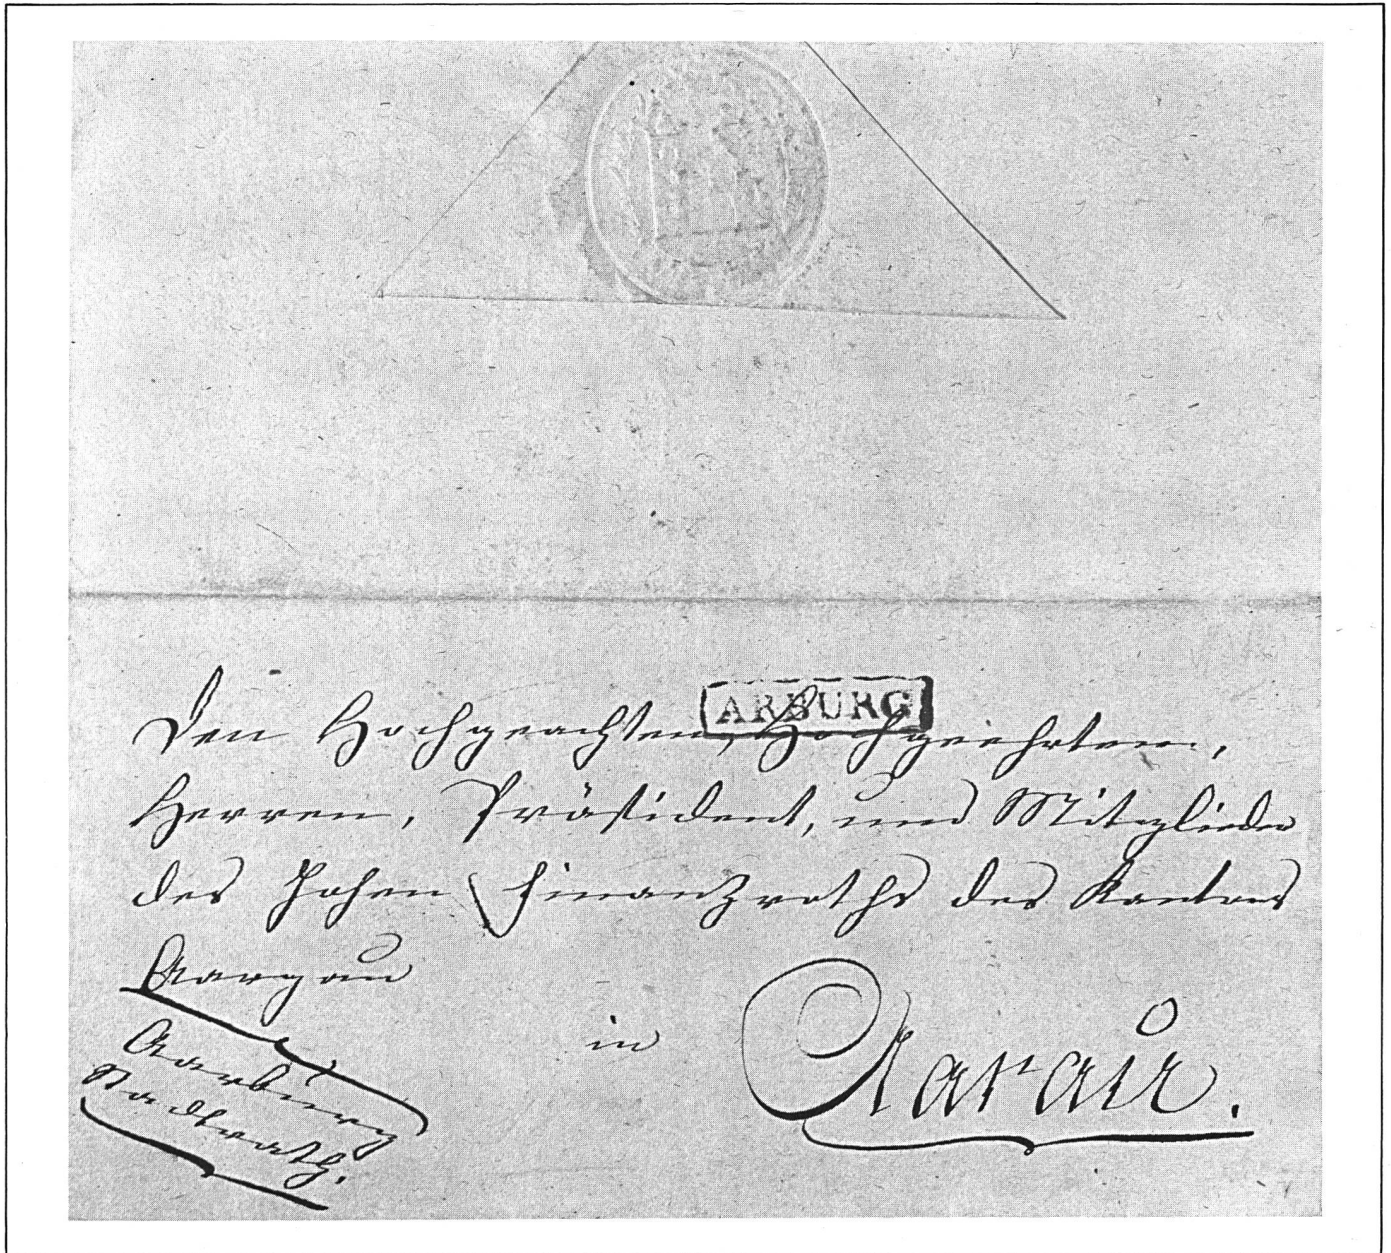 ARBURG
Den Hochgeachten, Hochgeehrten,
Herren, Präsident, und Mitglieder
des Hohen Finanzraths des Kantons
Aargau
in Aarau.
Aarburg
Stadtrath.